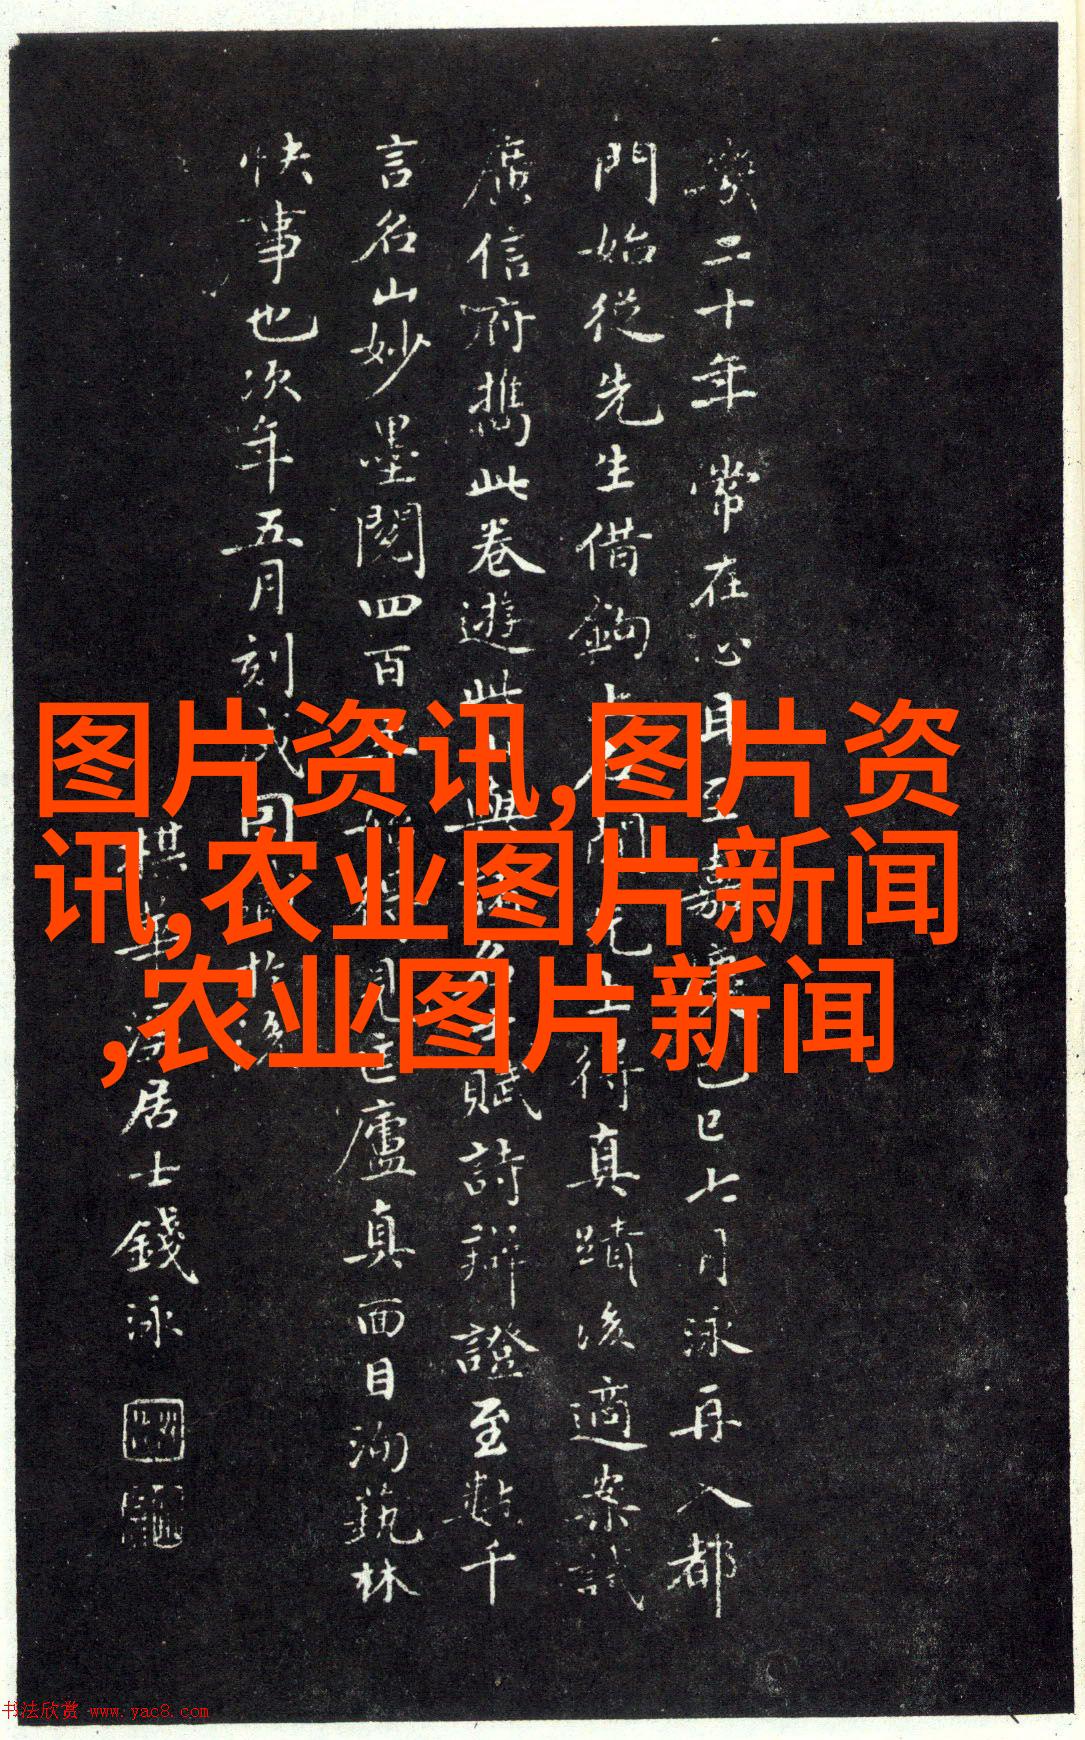 二十年常在心目至嘉慶己巳七月泳再入都
門始從先生借鉤先生得真蹟後適案試
廣信府攜此卷遊此與賦詩辯證至數千
言名山妙墨閱四百年見匡廬真面目洵藝林
快事也次年五月刻成
梅華溪居士錢泳
图片资讯,图片资
讯,农业图片新闻
,农业图片新闻
书法欣赏 www.yac8.com